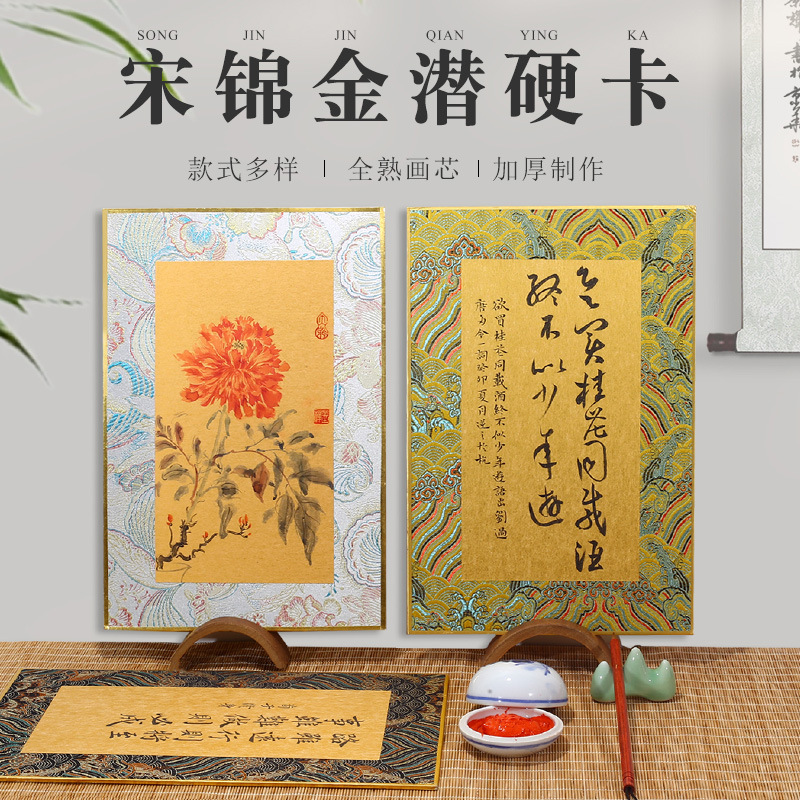 SONG JIN JIN QIAN YING KA
宋锦金潜硬卡
款式多样 | 全熟画芯 | 加厚制作
欲買桂花同載酒
終不似少年遊
欲買桂花同載酒終不似少年遊語出劉過
唐多令一詞癸卯夏月
路雖遠行則將至
事雖難做則必成